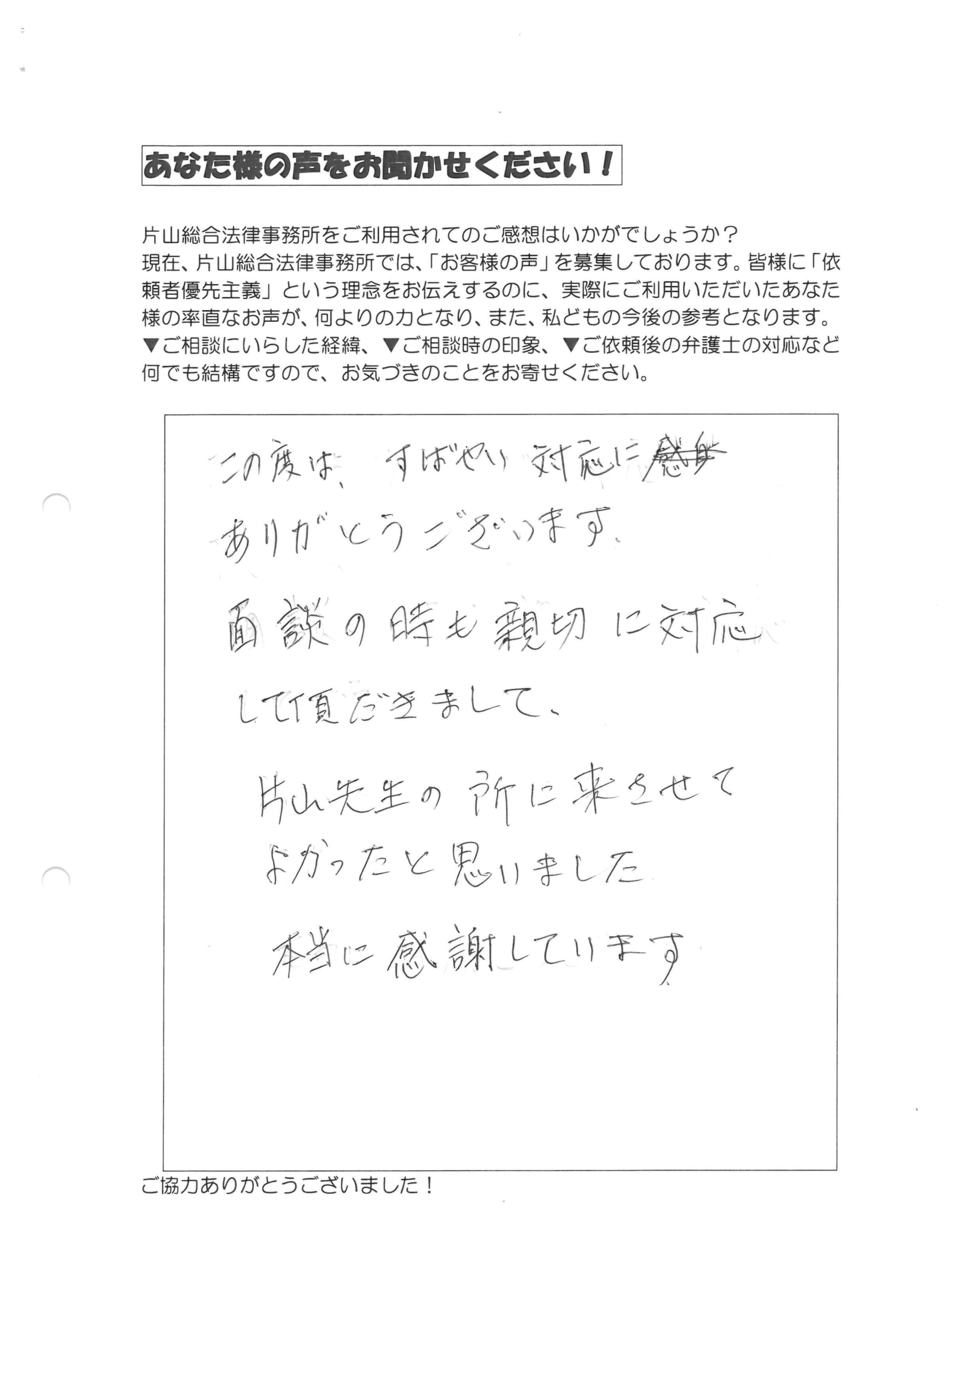 あなた様の声をお聞かせください！
片山総合法律事務所をご利用されてのご感想はいかがでしょうか？
現在、片山総合法律事務所では、「お客様の声」を募集しております。皆様に「依
頼者優先主義」という理念をお伝えするのに、実際にご利用いただいたあなた
様の率直なお声が、何よりの力となり、また、私どもの今後の参考となります。
▼ご相談にいらした経緯、▼ご相談時の印象、▼ご依頼後の弁護士の対応など
何でも結構ですので、お気づきのことをお寄せください。
この度は、すばやい対応に
ありがとうございます。
面談の時も親切に対応
して頂だきまして、
片山先生の所に来させて
よかったと思いました
本当に感謝しています
ご協力ありがとうございました！